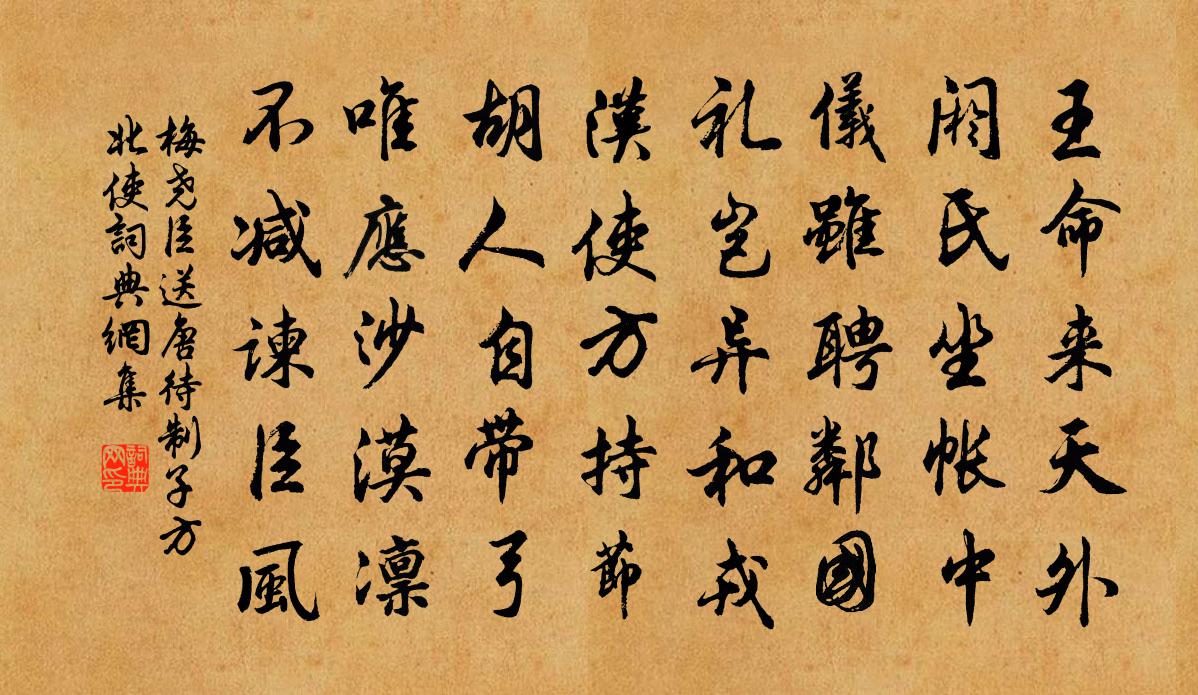 王命来天外
阏氏坐帐中
儀雖聘鄰國
礼岂异和戎
漢使方持節
胡人自带弓
唯應沙漠凛
不减諫臣風
梅尧臣送唐待制子方
北使詞典網集
詞典網印